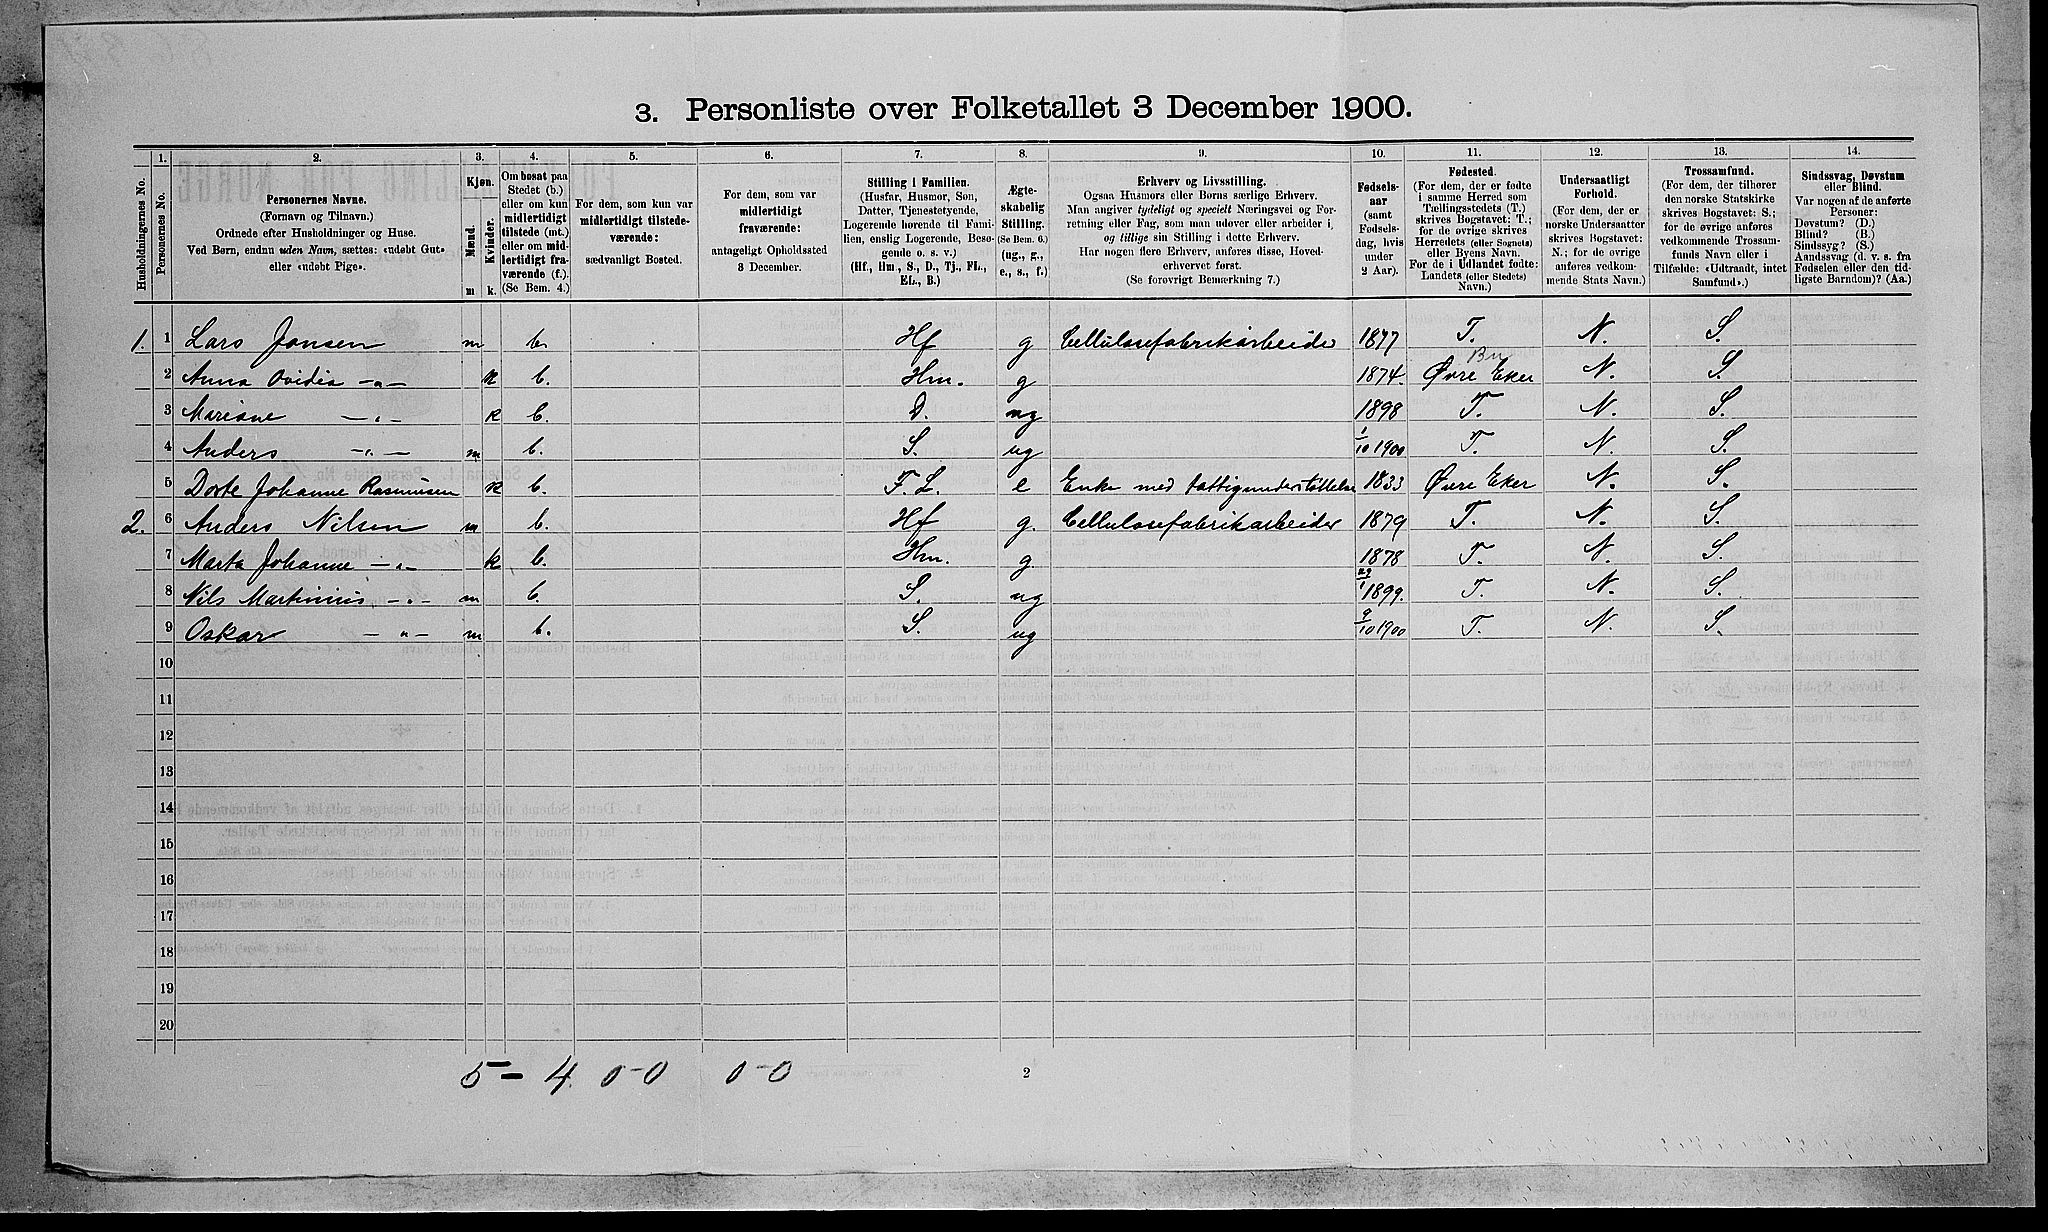 3. Personliste over Folketallet 3 December 1900.
Husholdningernes No.
1.
Personernes No.
2.
Personernes Navne.
(Fornavn og Tilnavn.)
Ordnede efter Husholdninger og Huse.
Ved Børn, endnu uden Navn, sættes: «udøbt Gut»
eller «udøbt Pige».
3.
Kjøn.
Mænd.
Kvinder.
m
k.
4.
Om bosat paa
Stedet (b.)
eller om kun
midlertidigt
tilstede (mt.)
eller om mid-
lertidigt fra-
værende (f.).
(Se Bem. 4.)
5.
For dem, som kun var
midlertidigt tilstede-
værende:
sædvanligt Bosted.
6.
For dem, som var
midlertidigt
fraværende:
antageligt Opholdssted
3 December.
7.
Stilling i Familien.
(Husfar, Husmor, Søn,
Datter, Tjenestetyende,
Logerende hørende til Fami-
lien, enslig Logerende, Besø-
gende o. s. v.)
(Hf., Hm., S., D., Tj., FL.,
EL., B.)
8.
Ægte-
skabelig
Stilling.
(Se Bem. 6.)
(ug., g.,
e., s., f.)
9.
Erhverv og Livsstilling.
Ogsaa Husmors eller Børns særlige Erhverv.
Man angiver tydeligt og specielt Næringsvei og For-
retning eller Fag, som man udøver eller arbeider i,
og tillige sin Stilling i dette Erhverv.
Har nogen flere Erhverv, anføres disse, Hoved-
erhvervet først.
(Se forøvrigt Bemærkning 7.)
10.
Fødsels-
aar
(samt
Fødsels-
dag, hvis
under
2 Aar).
11.
Fødested.
(For dem, der er fødte
i samme Herred som
Tællingsstedets (T.)
skrives Bogstavet: T.;
for de øvrige skrives
Herredets (eller Sognets)
eller Byens Navn.
For de i Udlandet fødte:
Landets (eller Stedets)
Navn.)
12.
Undersaatligt
Forhold.
(For dem, der er
norske Undersaatter
skrives Bogstavet:
N.; for de øvrige
anføres vedkom-
mende Stats Navn.)
13.
Trossamfund.
(For dem, der tilhører
den norske Statskirke
skrives Bogstavet: S.;
for de øvrige anføres
vedkommende Trossam-
funds Navn eller i
Tilfælde: «Udtraadt, intet
Samfund».)
14.
Sindssvag, Døvstum
eller Blind.
Var nogen af de anførte
Personer:
Døvstum? (D.)
Blind? (B.)
Sindssyg? (S.)
Aandssvag (d. v. s. fra
Fødselen eller den tid-
ligste Barndom)? (Aa.)
1. 1 Lars Jansen m b. Hf g Cellulosefabrikarbeider 1877 T. N. S.
2 Anna Ovidia -"- k b. Hm. g 1874. Øvre Eker N. S.
3 Mariane -"- k b. D. ug 1898 T. N. S.
4 Anders -"- m b. S. ug 1/10 1900 T. N. S.
5 Dorte Johanne Rasmusen k b. F. L. e Enke med fattigunderstøttelse 1833 Øvre Eker N. S.
2. 6 Anders Nilsen m b. Hf g. Cellulosefabrikarbeider 1879 T. N. S.
7 Marta Johanne -"- k b. Hm. g. 1878 T. N. S.
8 Nils Martinius -"- m b. S. ug 29/1 1899. T. N. S.
9 Oskar -"- m b. S. ug 9/10 1900 T. N. S.
10
11
12
13
14
15
16
17
18
19
20
5 - 4. 0-0 0-0
2